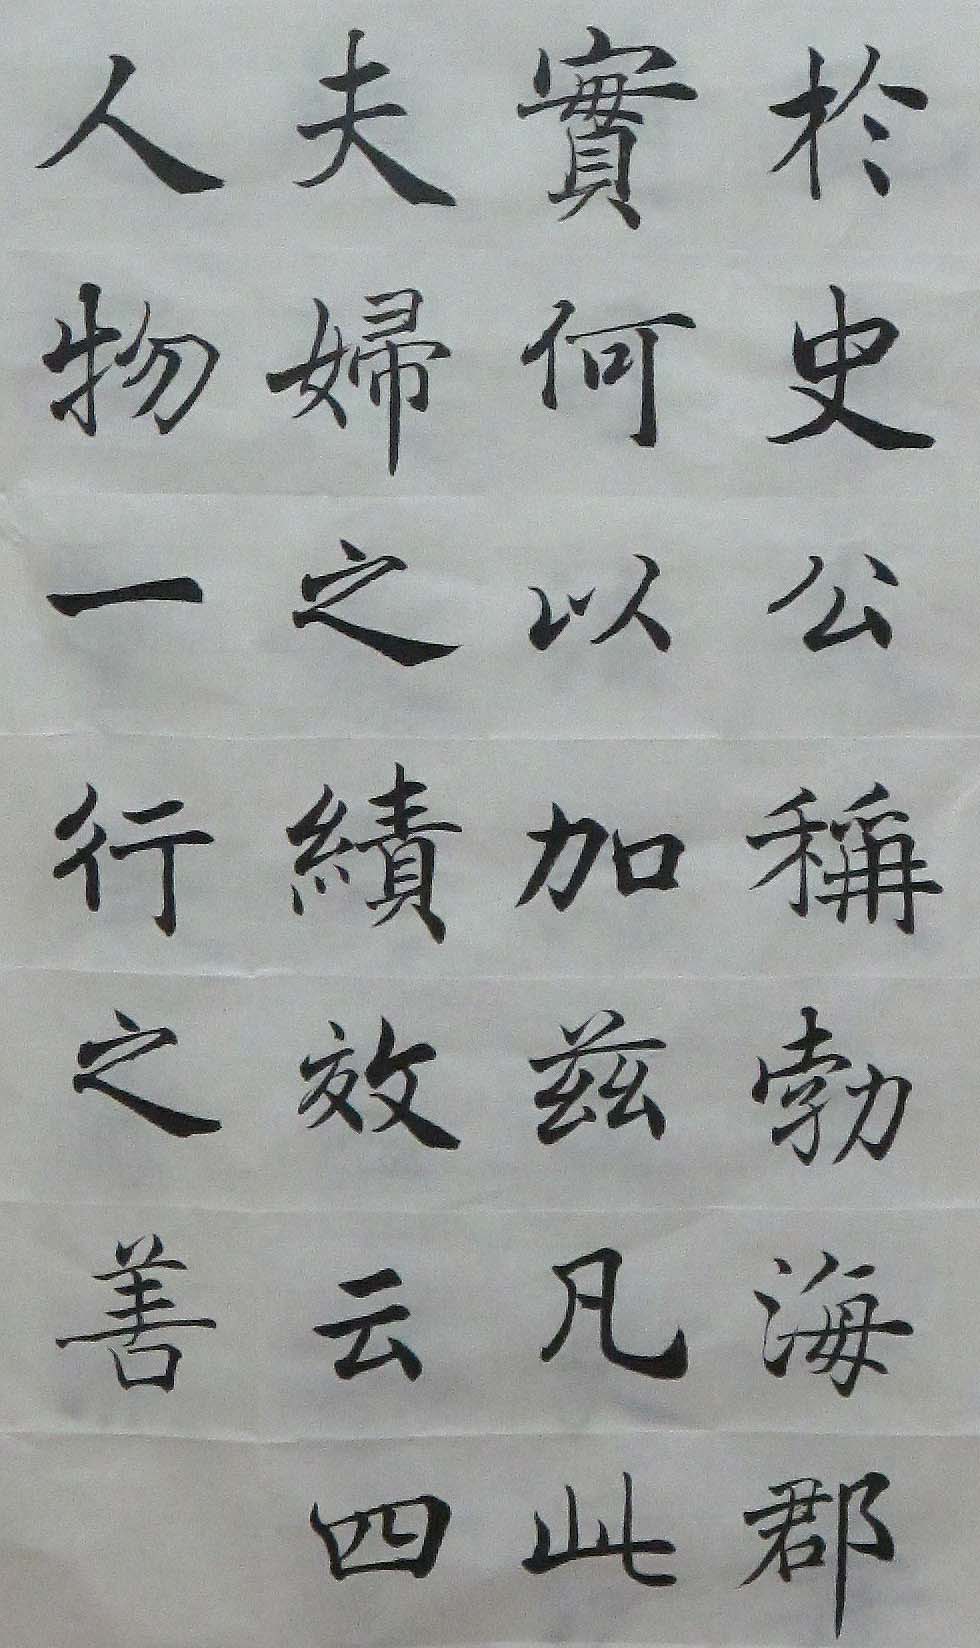 於史公稱勃海郡
實何以加茲凡此
夫婦之績效云四
人物一行之善